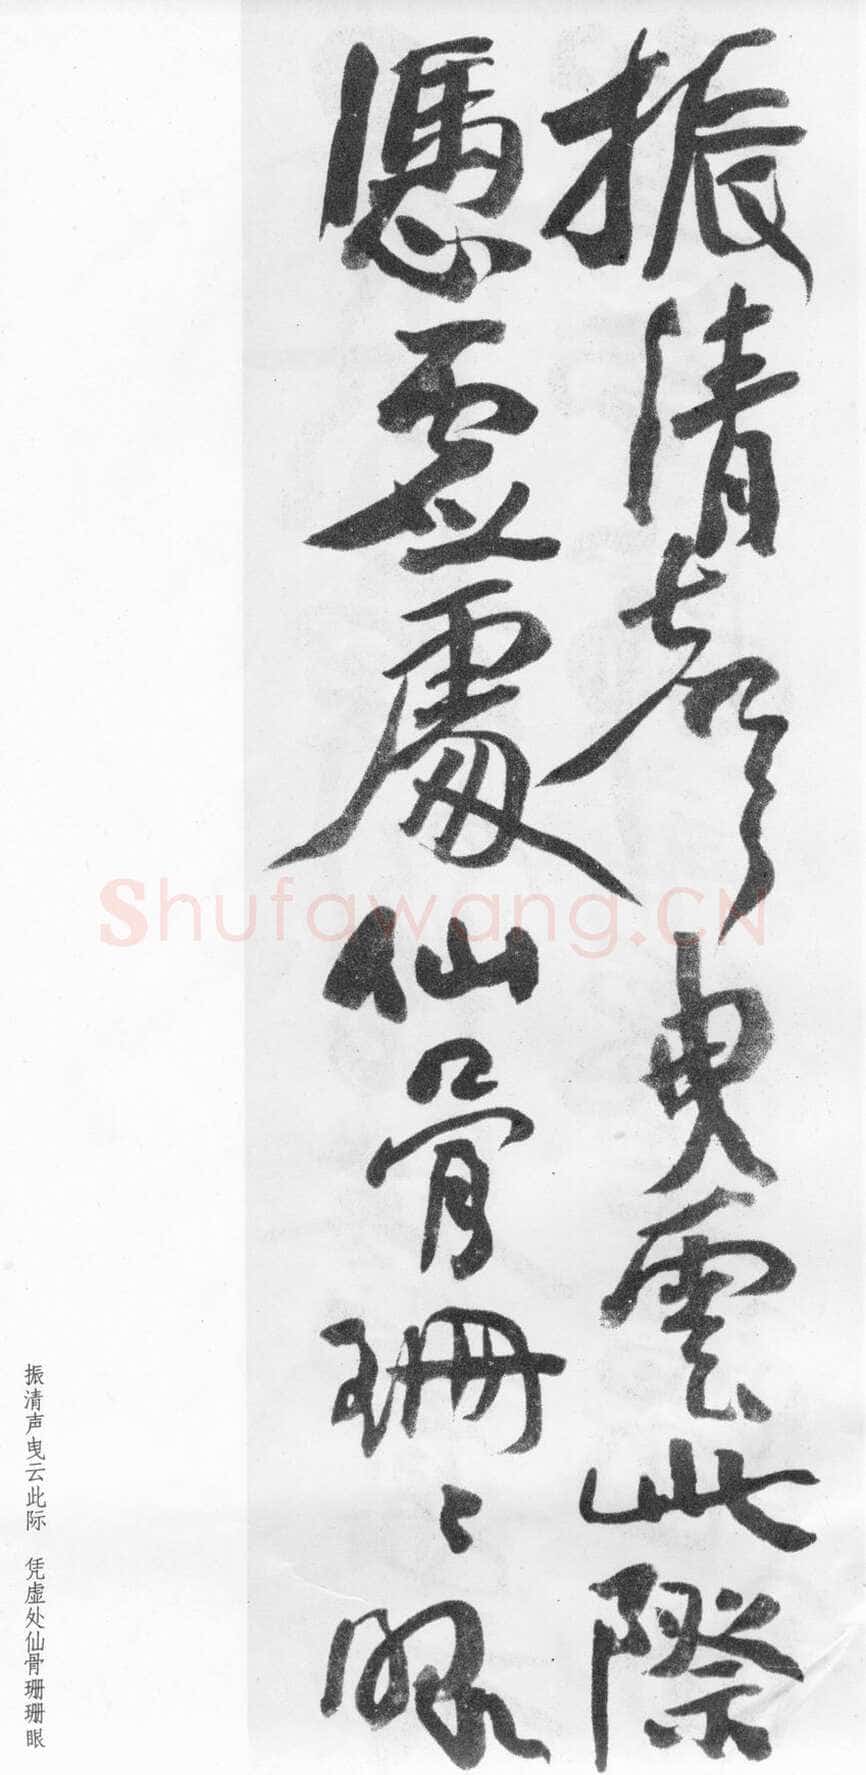 振清聲曳雲此際
憑虛處仙骨珊〻眼
振清声曳云此际 凭虚处仙骨珊珊眼
Shufawang.CN